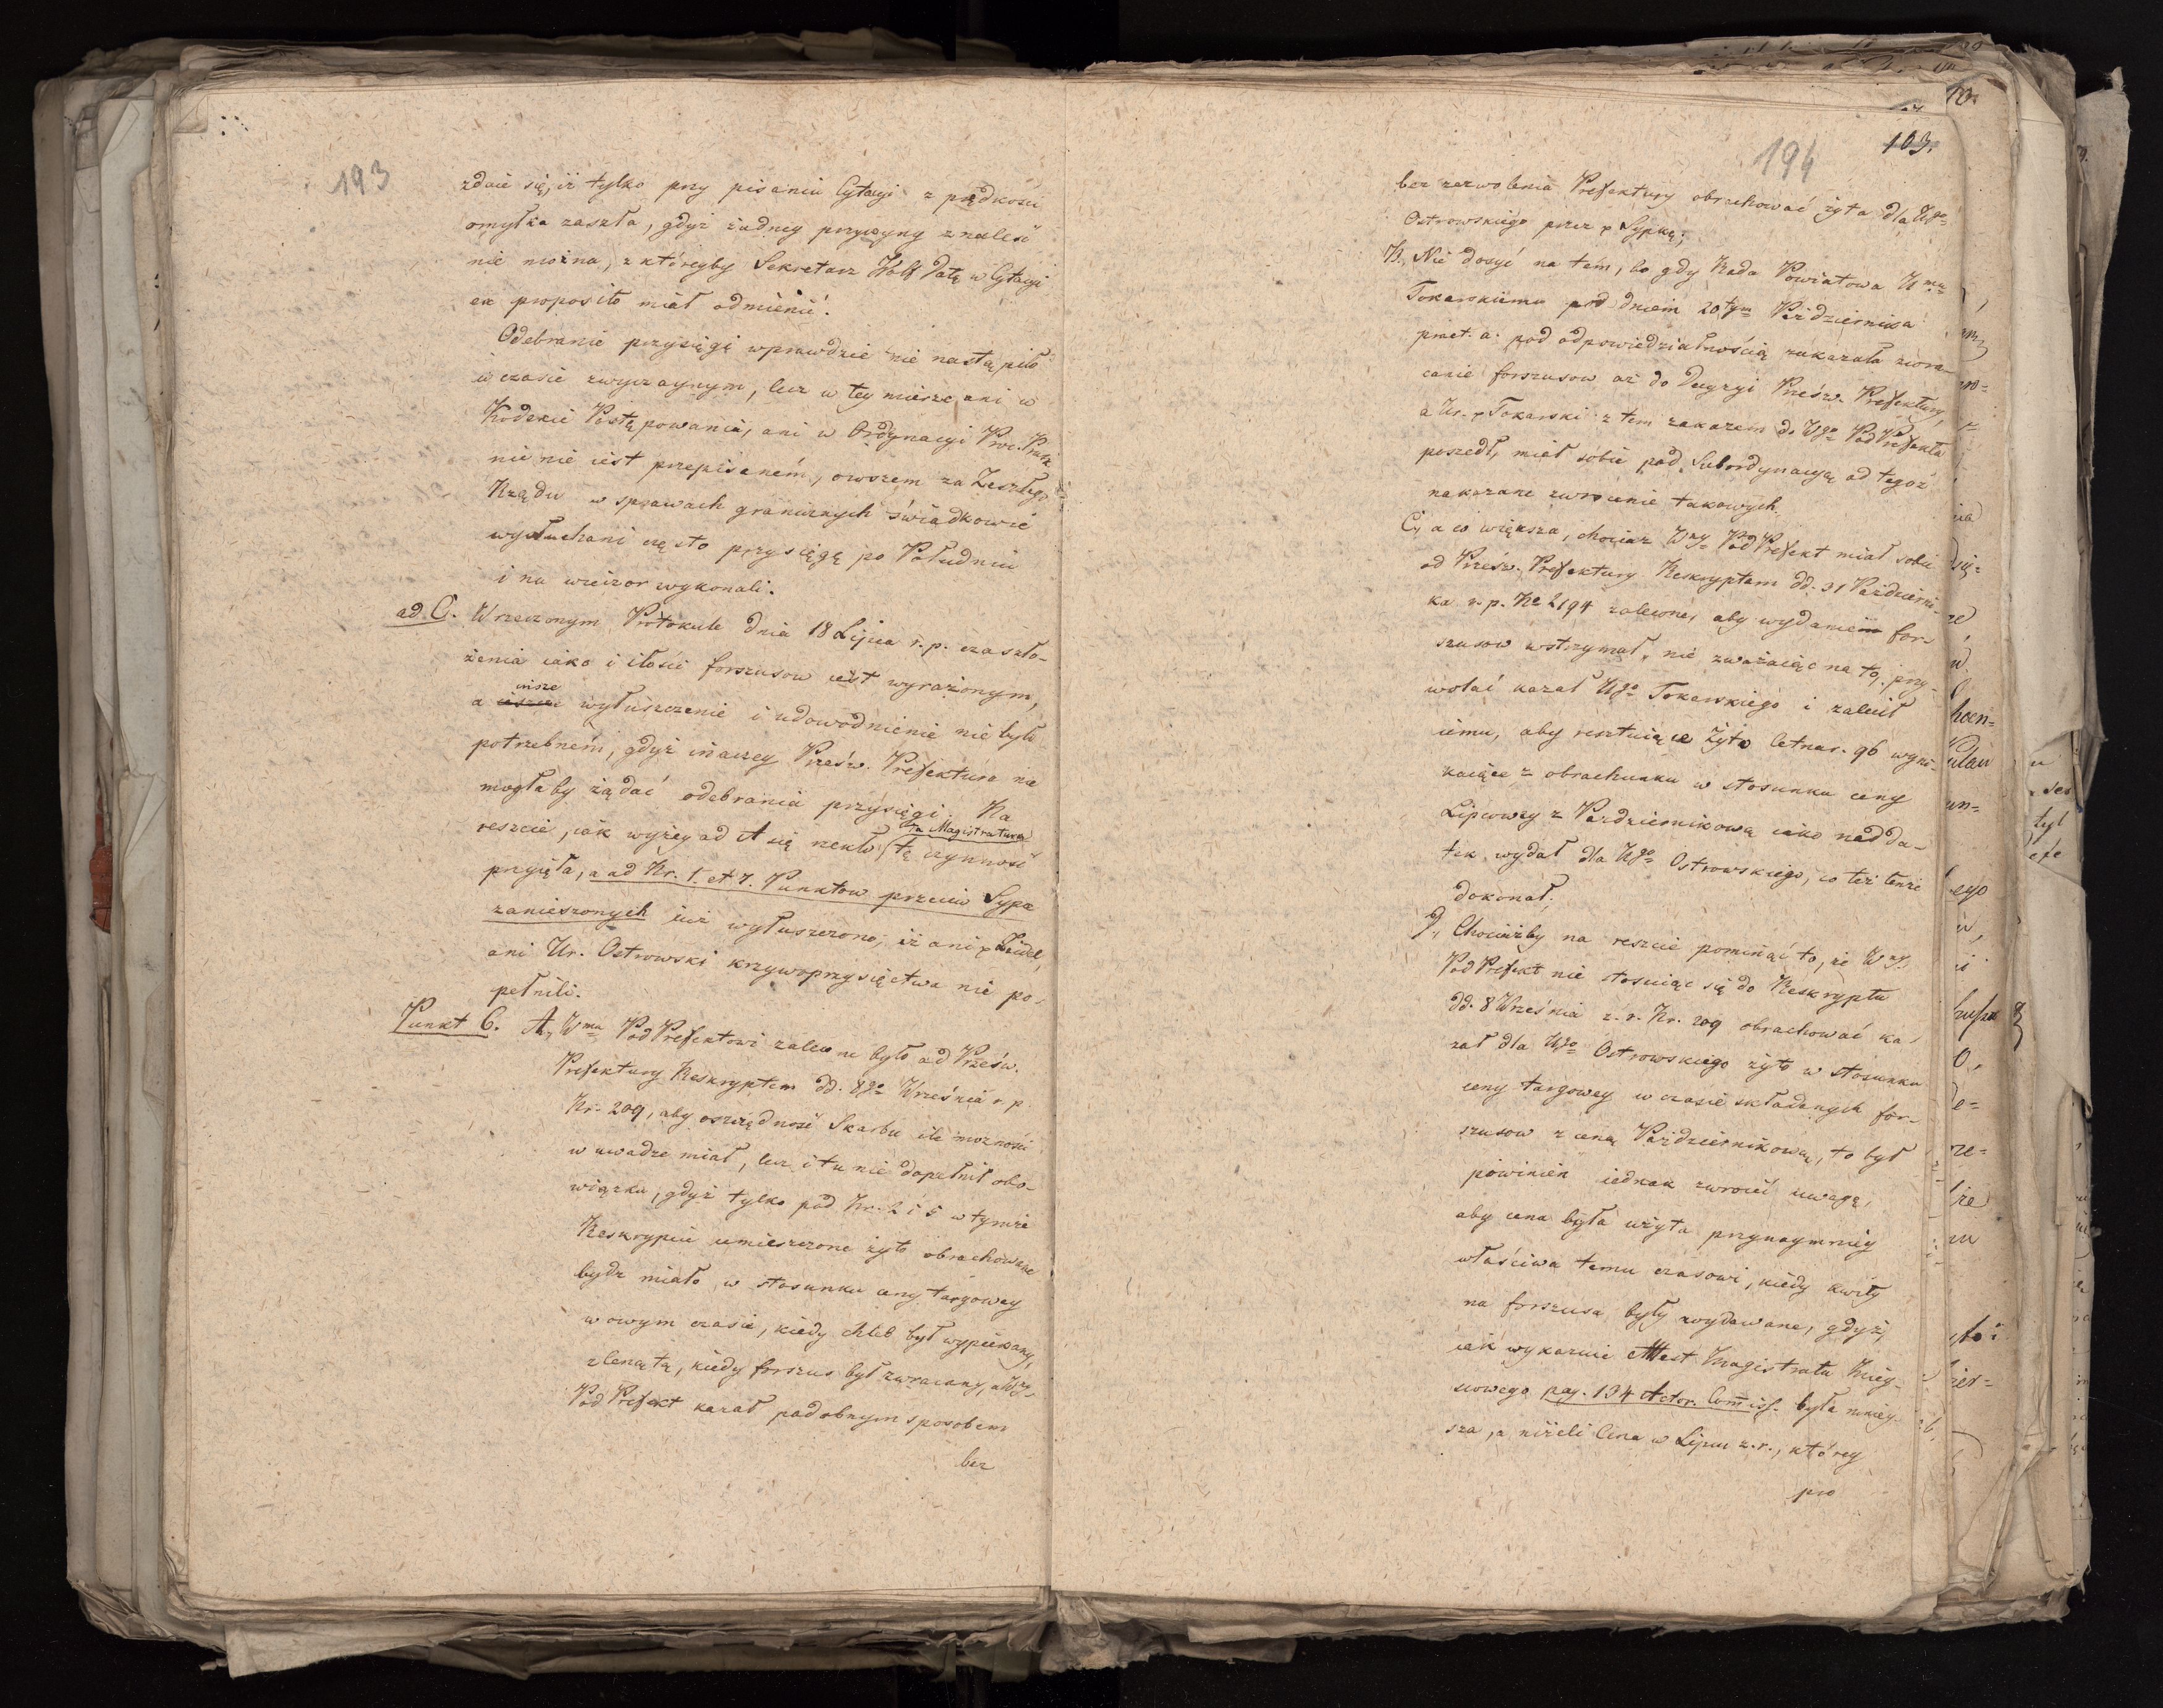 193
zdaie się, iż tylko przy pisaniu Cytacyi z prędkości
omyłka zaszła, gdyż żadney przyczyny znaleść
nie można, z któreyby Sekretarz Wolf Datę w Cytacyi
ex proposito miał odmienić.
Odebranie przysięgi wprawdzie nie nastąpiło
w czasie zwyczaynym, lecz w tey mierze ani w
Kodexie Postępowania, ani w Ordynacyi Proc. Prusk.
nic nie iest przepisaném, owszem za Zeszłego
Rządu w sprawach granicznych świadkowie
wysłuchani często przysięgę po Południu
i na wieczor wykonali.
ad. C. W rzeczonym Protokule dnia 18 Lipca r. p. czas zło-
żenia iako i ilości forszusow iest wyrażonym,
insze
a wyłuszczenie i udowodnienie nie było
potrzebném, gdyż inaczey Prześw. Prefektura nie
mogłaby żądać odebrania przysięgi. Na
ta Magistratura
reszcie, iak wyżey ad A się rzekło, tę czynność
przyięła, a ad Nr. 1. et 7. Punktow przeciw Sypa
zanieszonych iuż wyłuszczono, iż ani p Zeidel,
ani Ur. Ostrowski krzywoprzysięctwa nie po-
pełnili.
Punkt 6. A, Wmu PodPrefektowi zalecone było od Prześw.
Prefektury Reskryptem dd. 8go Września r. p.
Nr. 209, aby oszczędność Skarbu ile możności
w uwadze miał, lecz i tu nie dopełnił obo-
wiązku, gdyż tylko pod Nr. 2 i 5 w tymże
Reskrypcie umieszczone żyto obrachowane
bydz miało w stosunku ceny targowey
w owym czasie, kiedy chleb był wypiekany,
z Ceną tą, kiedy forszus był zwracany, a Wny
PodPrefekt kazał podobnym sposobem
bez
194
103.
bez zezwolenia Prefektury obrachować żyta dla Ugo
Ostrowskiego przez p Sypkę;
B, Nie dosyć na tém, bo gdy Rada Powiatowa Umu
Tokarskiemu pod dniem 20tym Października
praet. a. pod odpowiedzialnością zakazała zwra-
canie forszusow aż do Decyzyi Prześw. Prefektury,
a Ur. p Tokarski z tem zakazem do Wgo PodPrefekta
poszedł, miał sobie pod Subordynacyą od tegoż
nakazane zwrócenie takowych.
C, a co większa, chociaż Wny PodPrefekt miał sobie
od Prześw. Prefektury Reskryptem dd. 31 Październi-
ka r. p. No 2194 zalecone, aby wydanie for-
szusow wstrzymał, nie zważaiąc na to, przy-
wołać kazał Ugo Tokarskiego i zalecił
iemu, aby resztuiące żyto Cetnar. 96 wyni-
kaiące z obrachunku w stosunku ceny
Lipcowey z Październikową iako nadda-
tek wydał dla Ugo Ostrowskiego, co też tenże
dokonał.
D, Chociażby na reszcie pominąć to, że Wny
PodPrefekt nie stosuiąc się do Reskryptu
dd. 8 Września z. r. Nr. 209 obrachować ka-
zał dla Ugo Ostrowskiego żyto w stosunku
ceny targowey w czasie składanych for-
szusow z ceną Październikową, to był
powinien iednak zwrocić uwagę,
aby cena była użyta przynaymniey
właściwa temu czasowi, kiedy kwity
na forszusa były wydawane, gdyż,
iak wykazuie Attest Magistratu Miey-
scowego pag. 134 Actor. Com̄iss. była mniey-
sza, a niżeli Cena w Lipcu z. r., którey
pro